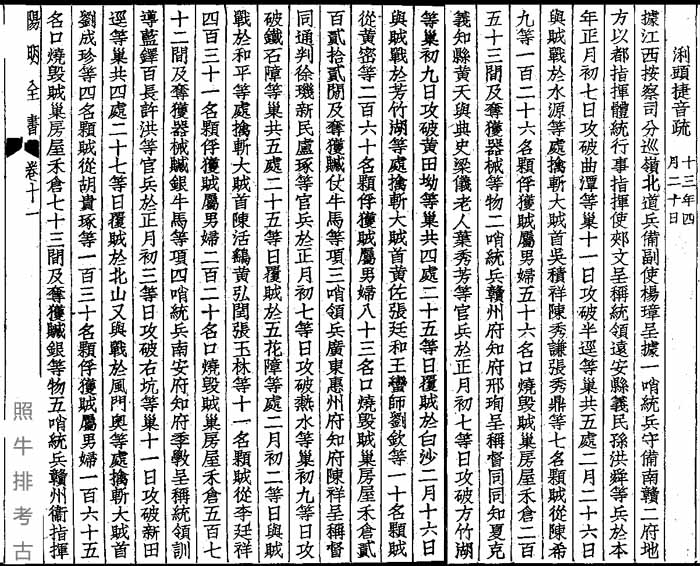 浰頭捷音疏 十三年四月二十日
據江西按察司分巡嶺北道兵備副使楊璋呈據一哨統兵守備南贛二府地
方以都指揮體統行事指揮使郟文呈稱統領遠安縣義民孫洪舜等兵於本
年正月初七日攻破曲潭等巢十一日攻破半逕等巢共五處二月二十六日
與賊戰於水源等處擒斬大賊首吳積祥陳秀謙張秀鼎等七名顆賊從陳希
九等一百二十六名顆俘獲賊屬男婦五十六名口燒毀賊巢房屋禾倉二百
五十三間及奪獲器械等物二哨統兵贛州府知府邢珣呈稱督同同知夏克
義知縣黃天與典史梁儀老人葉秀芳等官兵於正月初七等日攻破方竹湖
等巢初九日攻破黃田坳等巢共四處二十五等日覆賊於白沙二月十六日
與賊戰於芳竹湖等處擒斬大賊首黃佐張廷和王蠻師劉欽等一十名顆賊
從黃密等二百六十名顆俘獲賊屬男婦八十三名口燒毀賊巢房屋禾倉貳
百貳拾貳間及奪獲贓仗牛馬等項三哨領兵廣東惠州府知府陳祥呈稱督
同通判徐璣新民盧琢等官兵於正月初七等日攻破熱水等巢初九等日攻
破鐵石障等巢共五處二十五等日覆賊於五花障等處二月初二等日與賊
戰於和平等處擒斬大賊首陳活鷂黃弘閏張玉林等十一名顆賊從李廷祥
四百三十一名顆俘獲賊屬男婦二百二十名口燒毀賊巢房屋禾倉五百七
十二間及奪獲器械贓銀牛馬等項四哨統兵南安府知府季斆呈稱統領訓
導藍鐸百長許洪等官兵於正月初三等日攻破右坑等巢十一日攻破新田
逕等巢共四處二十七等日覆賊於北山又與戰於風門奧等處擒斬大賊首
劉成珍等四名顆賊從胡貴琢等一百三十名顆俘獲賊屬男婦一百六十五
名口燒毀賊巢房屋禾倉七十三間及奪獲贓銀等物五哨統兵贛州衛指揮
陽明全書 卷十一
照牛排考古